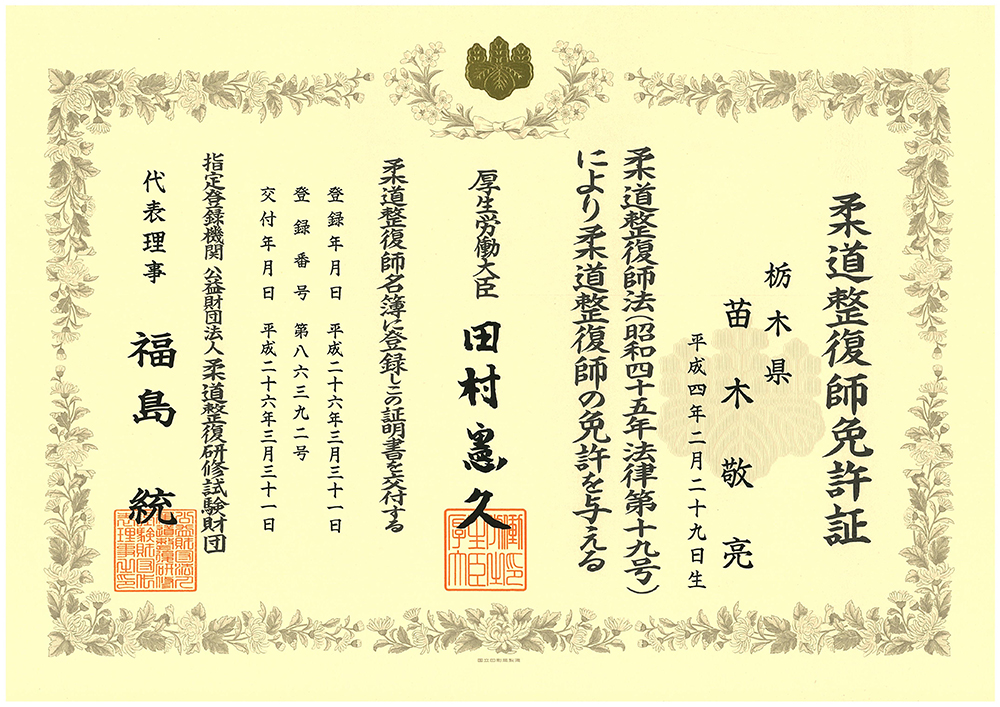 柔道整復師免許証
栃木県
苗木敬亮
平成四年二月二十九日生
柔道整復師法(昭和四十五年法律第十九号)
により柔道整復師の免許を与える
厚生労働大臣 田村憲久
柔道整復師名簿に登録しこの証明書を交付する
登録年月日 平成二十六年三月三十一日
登録番号 第八六三九二号
交付年月日 平成二十六年三月三十一日
指定登録機関 公益財団法人柔道整復研修試験財団
代表理事 福島統
国立印刷局製造